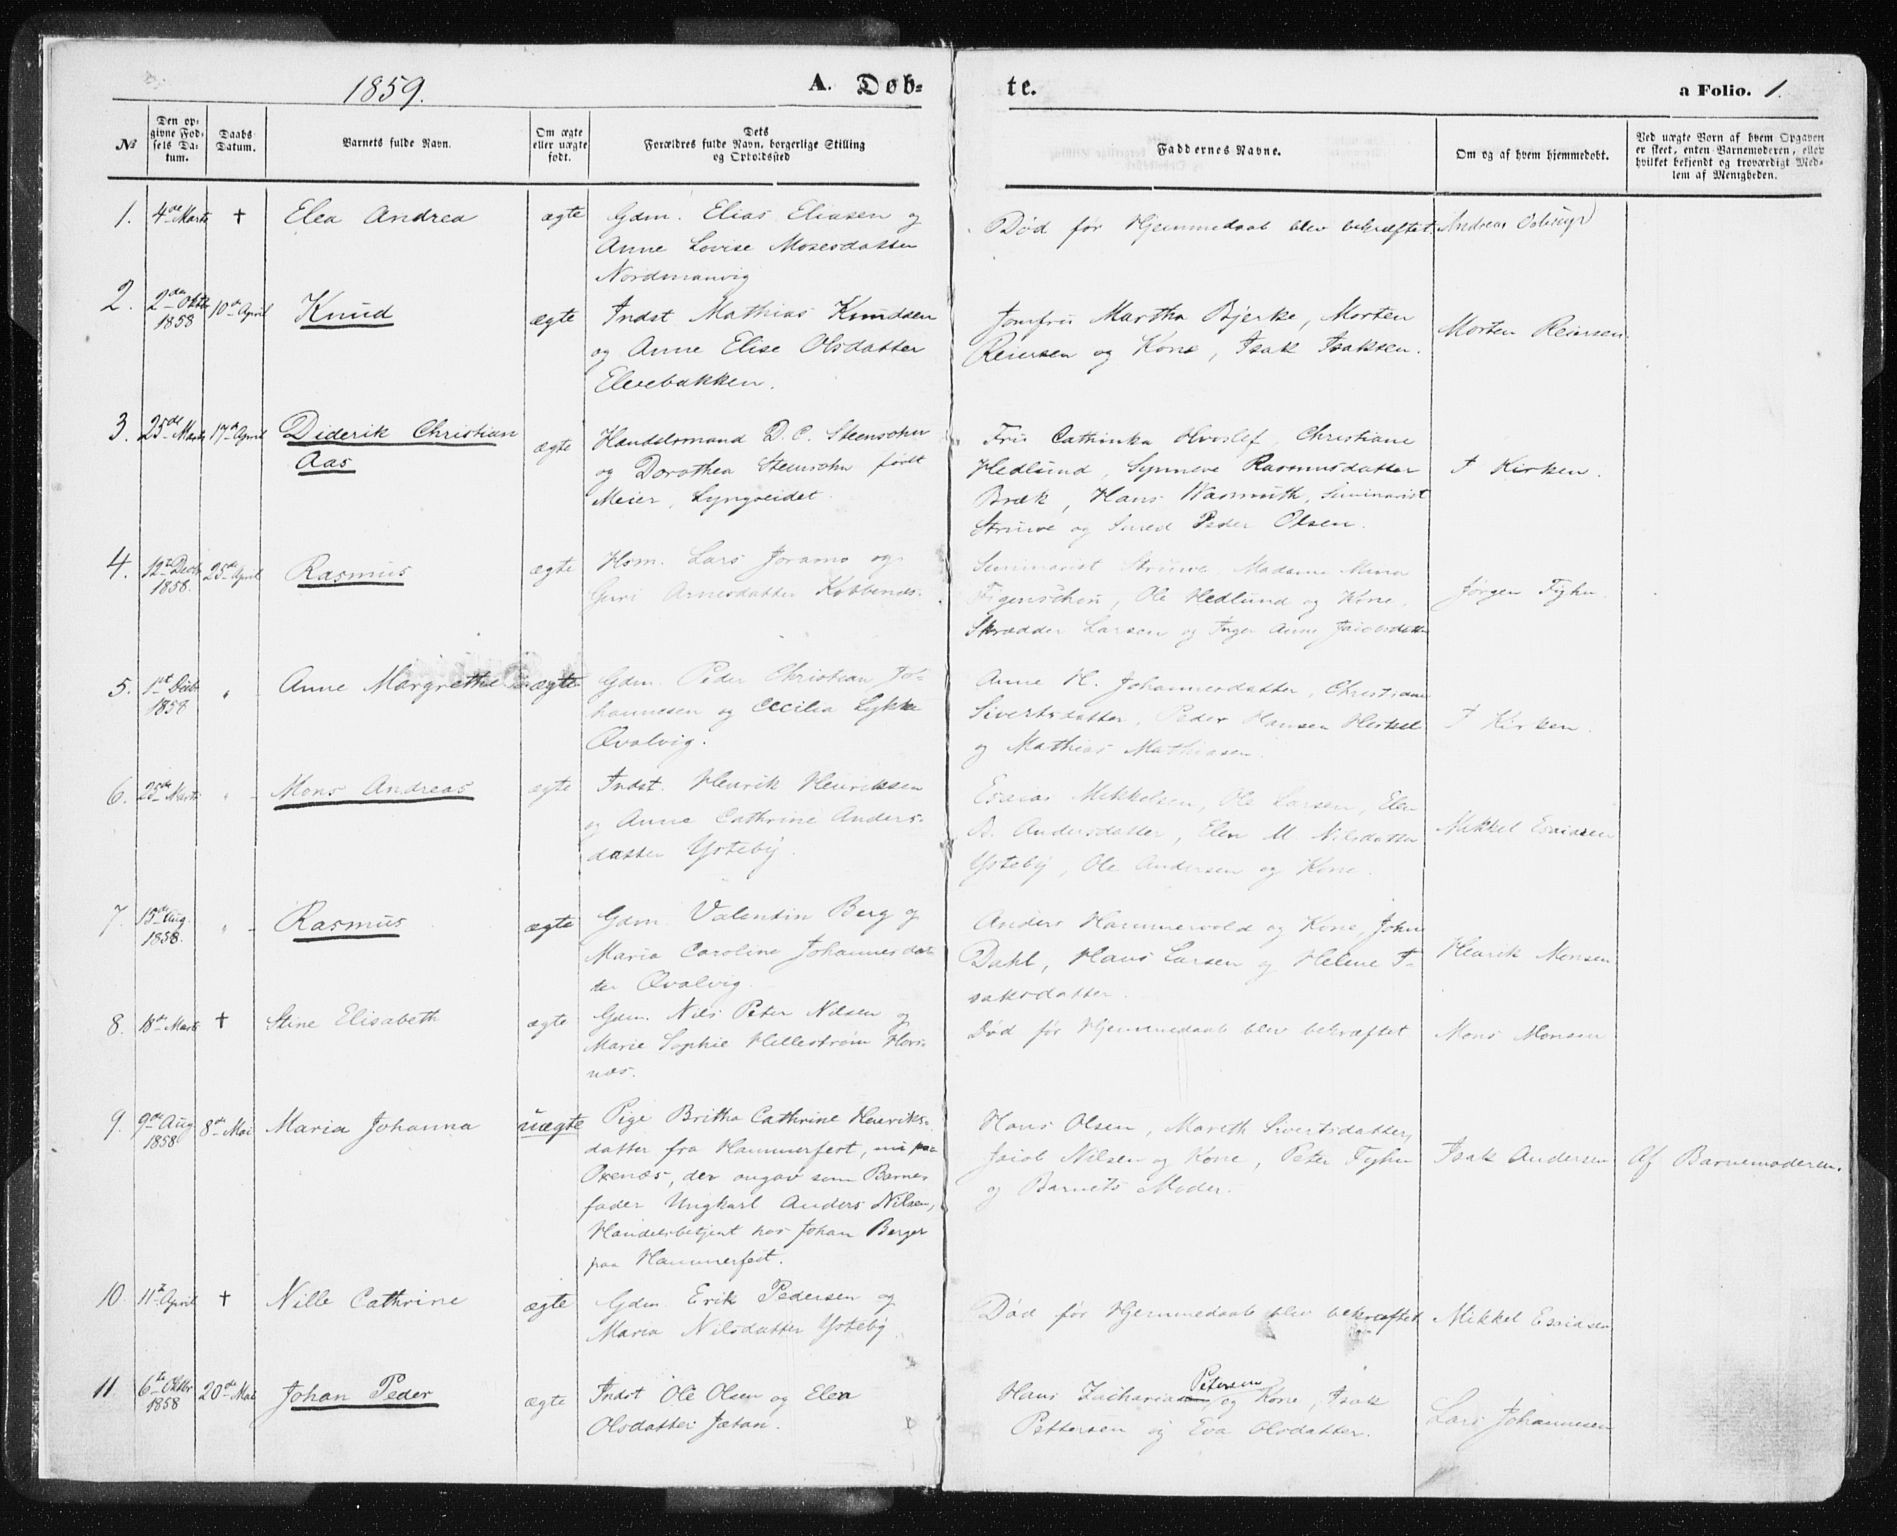 1859.
A. Døb-
te.
a Folio. 1.
№
Den op-
givne Fød-
sels Da-
tum.
Daabs
Datum.
Barnets fulde Navn.
Om ægte
eller uægte
født.
Dets
Forældres fulde Navn, borgerlige Stilling
og Opholdssted
Faddernes Navne.
Om og af hvem hjemmedøbt.
Ved uægte Børn af hvem Opgaven
er skeet, enten Barnemoderen, eller
hvilket bekjendt og troværdigt Med-
lem af Menigheden.
1. 4de Marts † Elea Andrea ægte Gdm. Elias Eliasen og
Anne Lovise Mosesdatter
Nordmanvig
Død før Hjemmedaab blev bekræftet. Andreas
2. 2den Oktb 1858 10de April Knud ægte Indst Mathias Knudsen
og Anne Elise Olsdatter
Elvebakken.
Jomfru Martha Bjerke, Morten
Reiersen og Kone, Isak Isaksen.
Morten Reiersen.
3. 25de Marts 17de April Diderik Christian
Aas
ægte Handelsmand D. C. Steensohn
og Dorothea Steensohn født
Meier, Lyngseidet.
Frü Cathinka Hvoslef, Christiane
Hedlund, Synneve Rasmusdatter
Bræk, Hans Wasmuth, Seminarist
Strüwe og Smed Peder Olsen.
I Kirken.
4. 12te Decbr 1858. 25de April Rasmus ægte Hsm. Lars Joramo og
Guri Arnesdatter Kobbenæs.
Seminarist Strüwe, Madame Mina
Figenschou, Ole Hedlund og Kone,
Skrædder Larsen og Inger Anne Jacobsdatter
Jørgen Fyhn.
5. 1st Decb 1858 " Anne Margrethe ægte Gdm. Peder Christian Jo-
hannesen og Cecilia Lykke
Qvalvig.
Anne H. Johannesdatter, Christiane
Sivertsdatter, Peder Hansen
og Mathias Mathiasen.
I Kirken.
6. 25de Marts " Mons Andreas ægte Indst. Henrik Henriksen
og Anne Cathrine Anders-
datter Ysteby.
Esaias Mikkelsen, Ole Larsen, Elen
B. Andersdatter, Elen M. Nilsdatter
Ysteby, Ole Andersen og Kone.
Mikkel Esaiasen
7. 15de Aug. 1858. " Rasmus ægte Gdm. Valentin Berg og
Maria Caroline Johannesdat-
ter Qvalvig.
Anders Hammervold og Kone, John
Dahl, Hans Larsen og Helene I-
saksdatter.
Henrik Monsen
8. 18de Marts † Stine Elisabeth ægte Gdm. Nils Peter Nilsen og
Marie Sophie Hellestrøm Hors-
næs.
Død før Hjemmedaab blev bekræftet Mons Monsen
9. 9de Aug 1858 8de Mai Maria Johanna uægte Pige Britha Cathrine Henriks-
datter fra Hammerfest, nu paa
Oxenæs, der angav som Barne-
fader Ungkarl Anders Nilsen,
Handelsbetjent hos Johan Berger
paa Hammerfest.
Hans Olsen, Mareth Sivertsdatter,
Jacob Nilsen og Kone, Peter Fyhn
og Barnets Moder.
Isak Andersen Af Barnemoderen.
10. 11te April † Nille Cathrine ægte Gdm Erik Pedersen og
Maria Nilsdatter Ysteby.
Død før Hjemmedaab blev bekræftet Mikkel Esaiasen
11. 6te Oktbr 1858 20de Mai Johan Peder ægte Indst Ole Olsen og Elen
Olsdatter Jætan.
Hans Zacharias Petersen og Kone, Isak
Pettersen og Eva Olsdatter.
Lars Johannesen